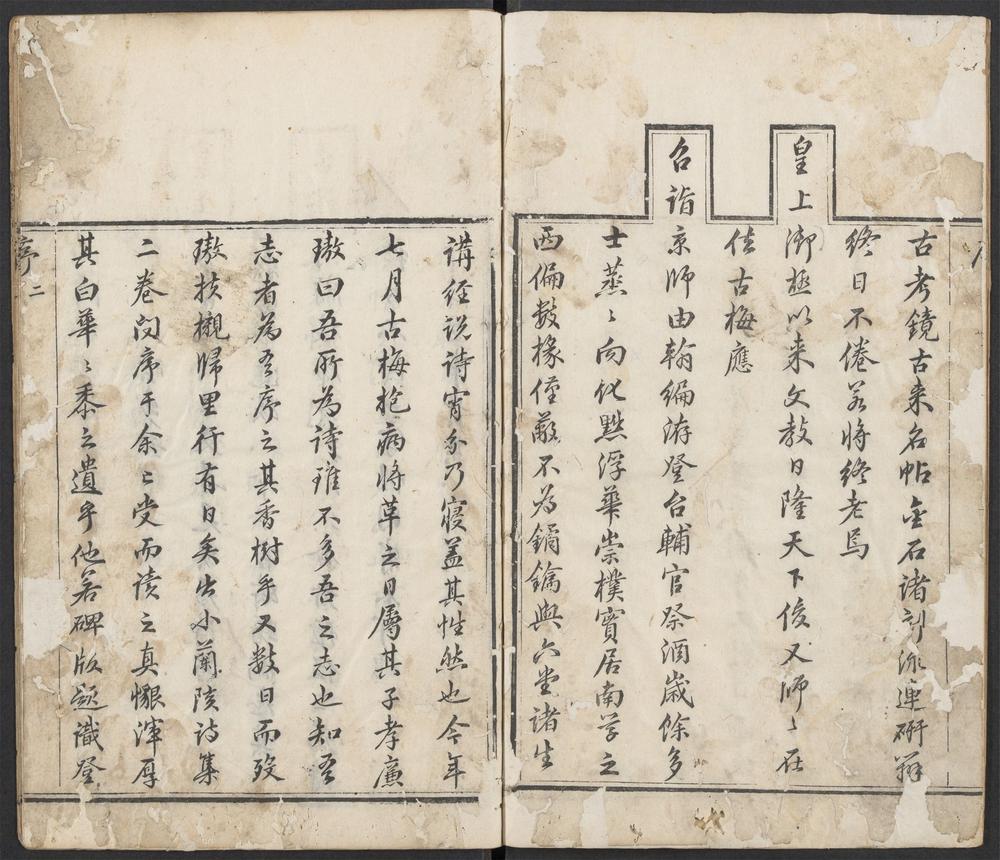 古考鏡古来名帖金石諸刻流連研辨
終日不倦若將終老焉
皇上御極以来文教日隆天下俊乂師〻在
位古梅應
召詣京師由翰編洊登台輔官祭酒嵗餘多
士蒸〻向化黜浮華崇樸實居南学之
西偏數椽僅蔽不為鐍鑰與六堂諸生
講經説詩宵分乃寢葢其性然也今年
七月古梅抱病將革之日屬其子孝廉
璈曰吾所為詩雖不多吾之志也知吾
志者為吾序之其香樹乎又數日而歿
璈扶櫬歸里行有日矣出小蘭陔詩集
二卷問序于余〻受而讀之真懇渾厚
其白華〻黍之遺乎他若碑版題識登
序 二